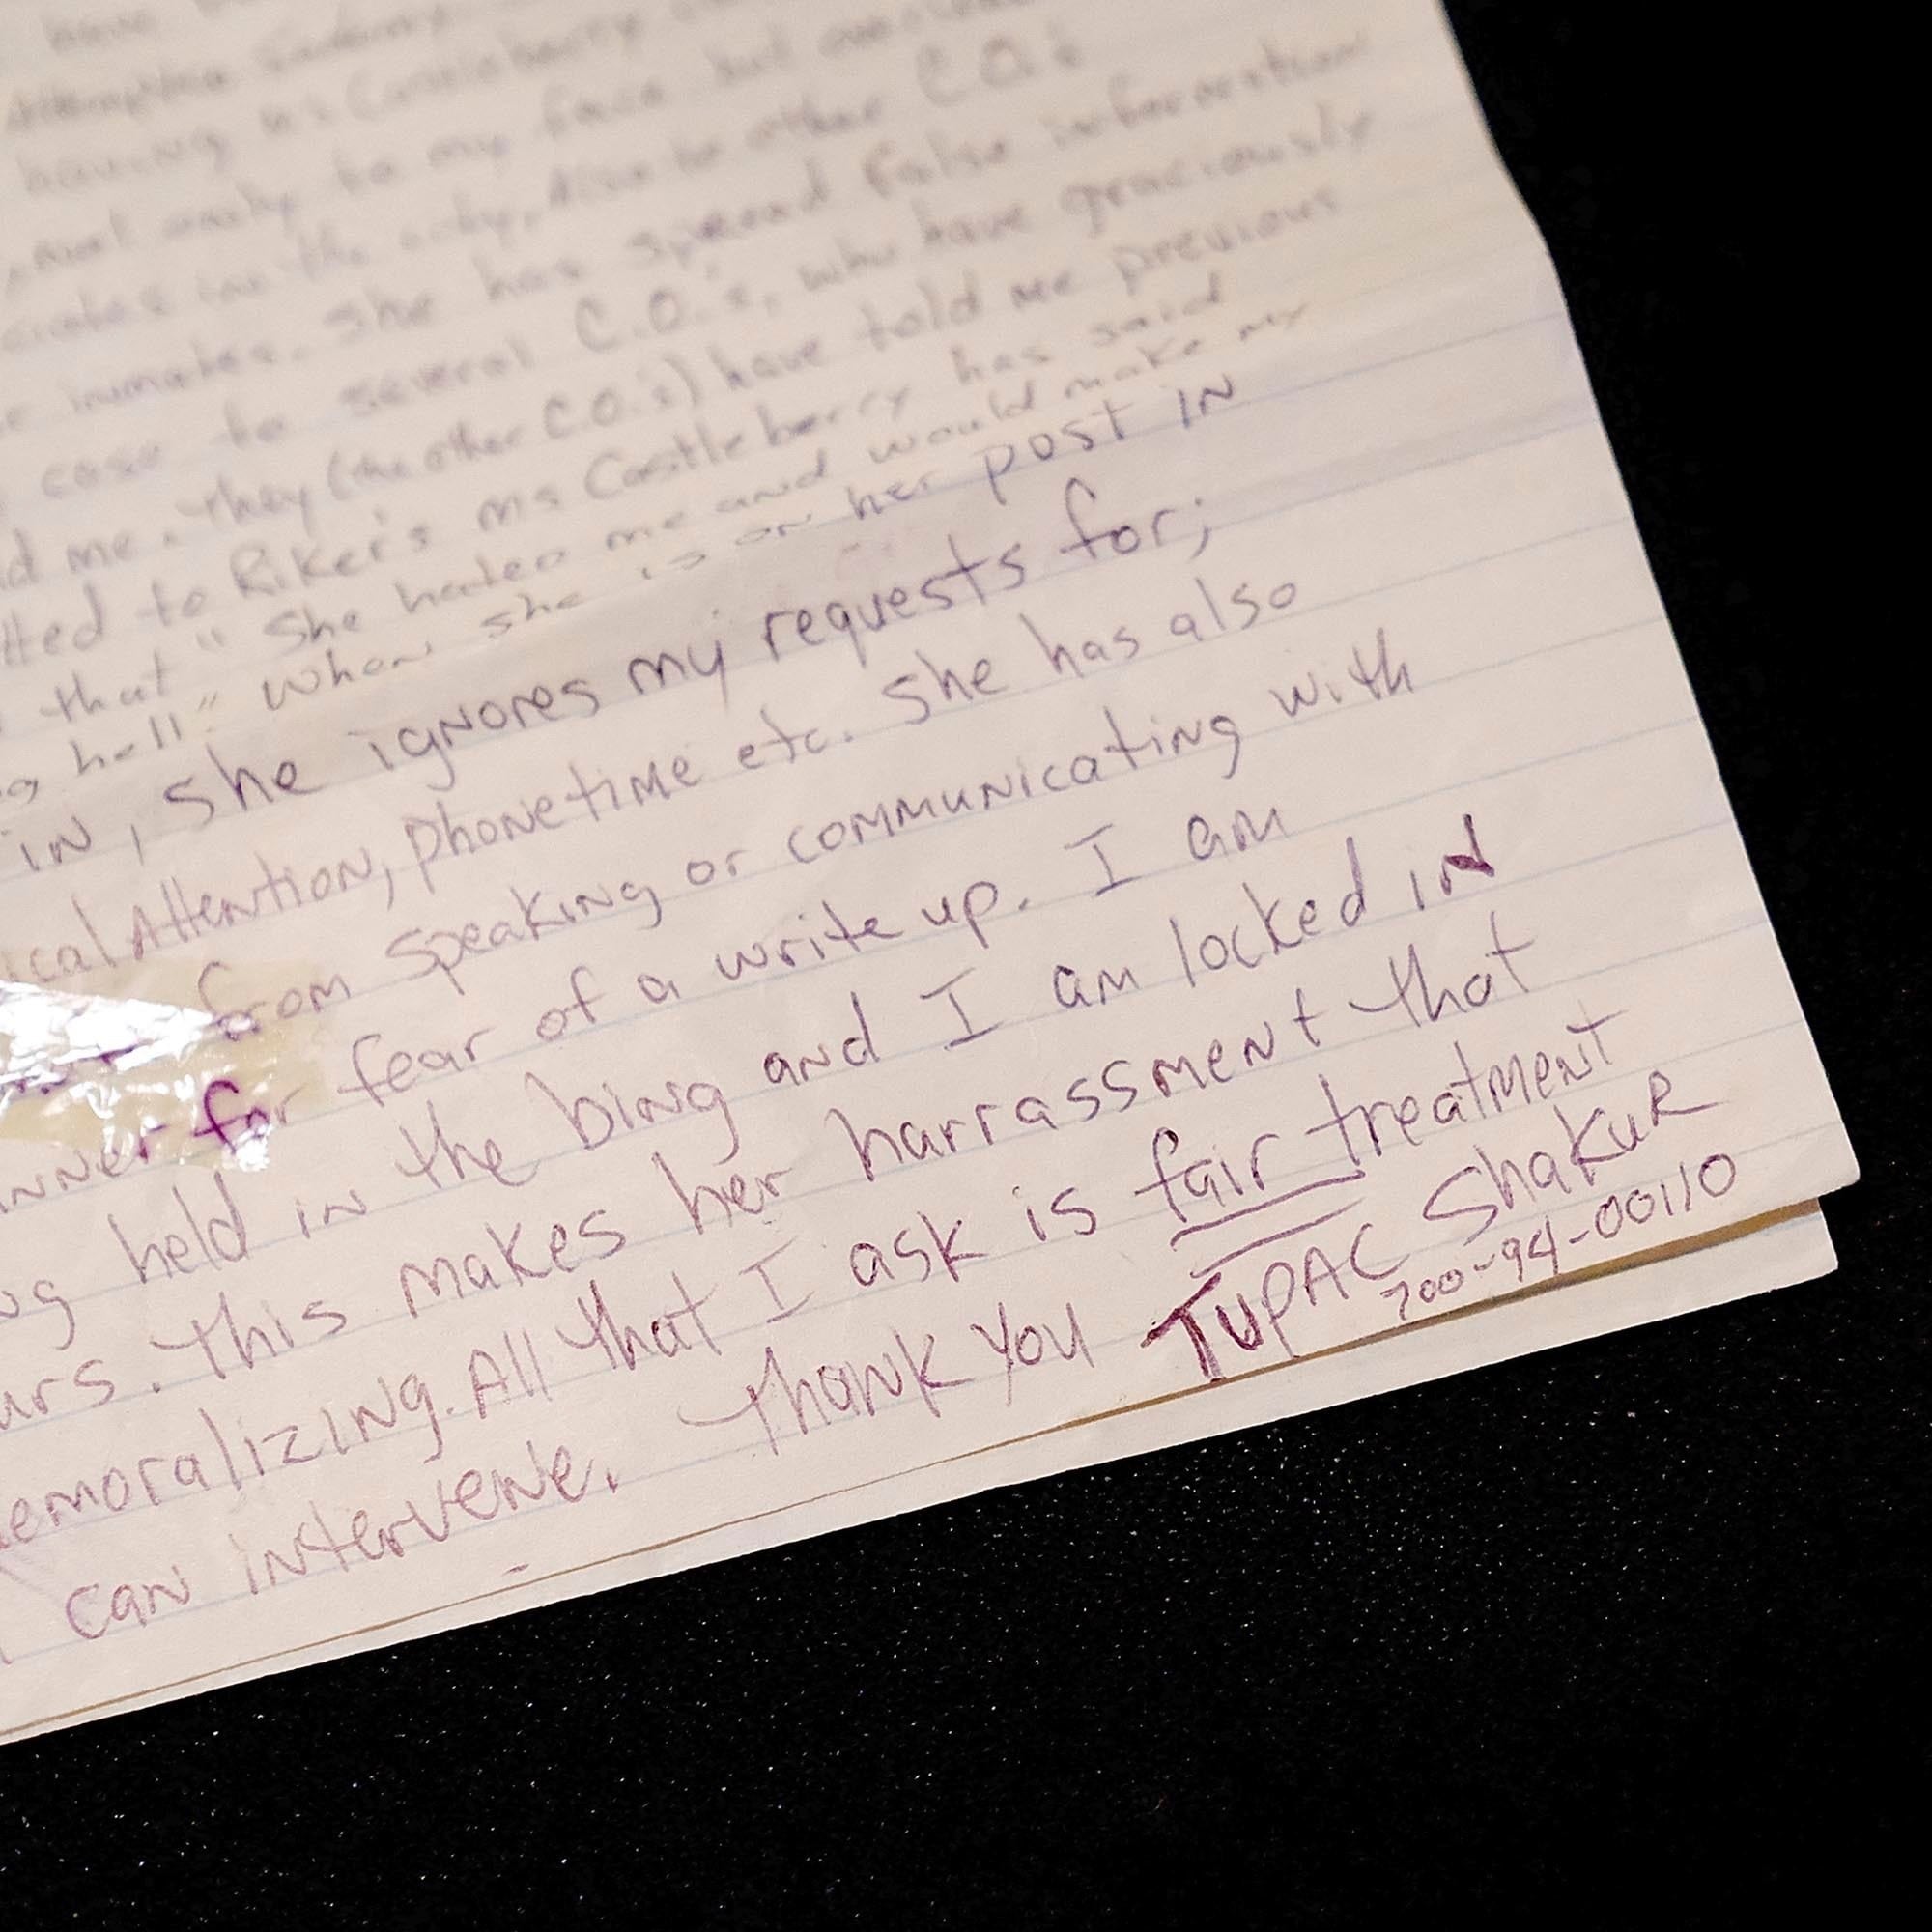 have
having
not only to my face but
in the city, Also to other C.O.s
inmates. She has spread false information
case to several C.O.'s, who have graciously
d me. They (the other C.O.'s) have told me previous
tted to Riker's Ms Castleberry has said
that "She hates me and would make my
hell." When she is on her post IN
IN, She ignores my requests for;
ical Attention, phone time etc. She has also
from speaking or communicating with
nner for fear of a write up. I am
ng held in the bing and I am locked in
urs. This makes her harrassment that
emoralizing. All that I ask is fair treatment
can intervene. Thank you TUPAC ShakuR
700-94-00110